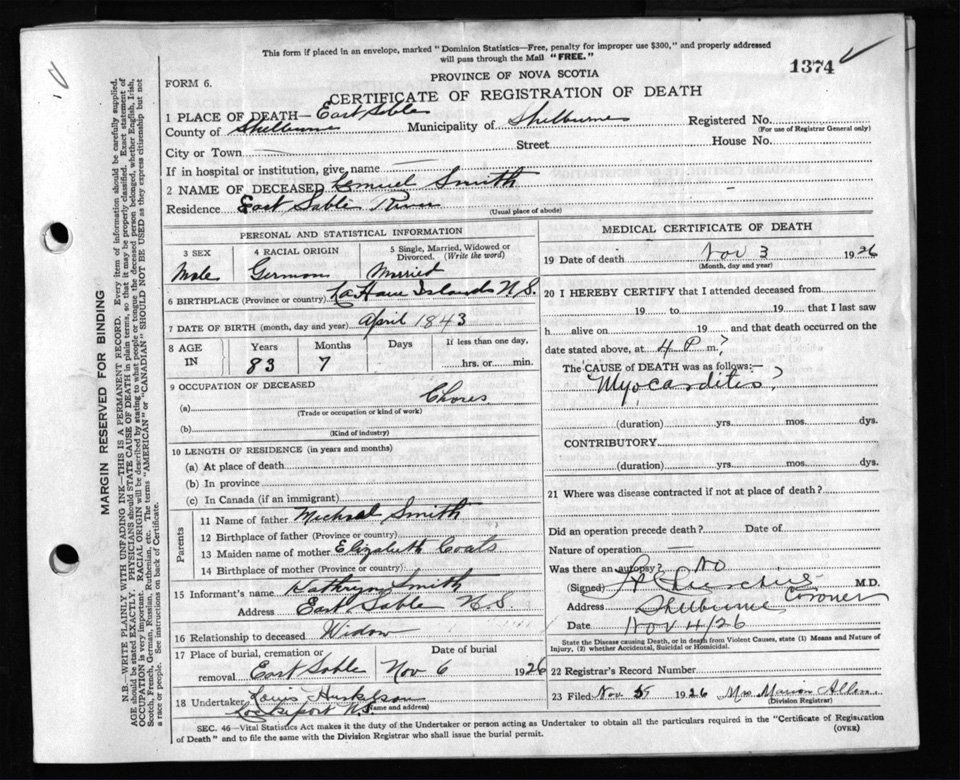 This form if placed in an envelope, marked "Dominion Statistics—Free, penalty for improper use $300," and properly addressed
will pass through the Mail "FREE."
1374
PROVINCE OF NOVA SCOTIA
FORM 6.
CERTIFICATE OF REGISTRATION OF DEATH
1 PLACE OF DEATH— East Sable
County of Shelburne Municipality of Shelburne Registered No.
(For use of Registrar General only)
City or Town Street House No.
If in hospital or institution, give name
2 NAME OF DECEASED Lemuel Smith
Residence East Sable River
(Usual place of abode)
PERSONAL AND STATISTICAL INFORMATION
3 SEX 4 RACIAL ORIGIN 5 Single, Married, Widowed or Divorced. (Write the word)
Male German Married
6 BIRTHPLACE (Province or country) LaHave Islands N.S.
7 DATE OF BIRTH (month, day and year) April 1843
8 AGE IN Years Months Days If less than one day,
83 7 hrs. or min.
9 OCCUPATION OF DECEASED
(a) Chores
(Trade or occupation or kind of work)
(b)
(Kind of industry)
10 LENGTH OF RESIDENCE (in years and months)
(a) At place of death
(b) In province
(c) In Canada (if an immigrant)
Parents
11 Name of father Michael Smith
12 Birthplace of father (Province or country)
13 Maiden name of mother Elizabeth Coats
14 Birthplace of mother (Province or country)
15 Informant's name Kathryn Smith
Address East Sable N.S.
16 Relationship to deceased Widow
17 Place of burial, cremation or removal Date of burial
East Sable Nov 6 1926
18 Undertaker Louis Huskilson
Lockeport N.S.
(Name and address)
MEDICAL CERTIFICATE OF DEATH
19 Date of death Nov 3 1926
(Month, day and year)
20 I HEREBY CERTIFY that I attended deceased from
19 to 19 that I last saw
h alive on 19 and that death occurred on the
date stated above, at 4 P m.?
The CAUSE of DEATH was as follows:—
Myocarditis?
(duration) yrs. mos. dys.
CONTRIBUTORY
(duration) yrs. mos. dys.
21 Where was disease contracted if not at place of death?
Did an operation precede death? Date of
Nature of operation —
Was there an autopsy? NO
(Signed) M.D.
Coroner
Address Shelburne
Date Nov 4/26
State the Disease causing Death, or in death from Violent Causes, state (1) Means and Nature of
Injury, (2) whether Accidental, Suicidal or Homicidal.
22 Registrar's Record Number
23 Filed Nov 1926 Mrs Marion Allen
(Division Registrar)
SEC. 46—Vital Statistics Act makes it the duty of the Undertaker or person acting as Undertaker to obtain all the particulars required in the "Certificate of Registration
of Death" and to file the same with the Division Registrar who shall issue the burial permit.
(OVER)
MARGIN RESERVED FOR BINDING
N.B.—WRITE PLAINLY WITH UNFADING INK—THIS IS A PERMANENT RECORD. Every item of information should be carefully supplied.
AGE should be stated EXACTLY. PHYSICIANS should STATE CAUSE OF DEATH in plain terms, so that it may be properly classified. Exact statement of
OCCUPATION is very important. RACIAL ORIGIN will be described by stating to what people or tongue the deceased person belonged, whether English, Irish,
Scotch, French, German, Russian, Ruthenian, etc. The terms "AMERICAN" or "CANADIAN" SHOULD NOT BE USED as they express citizenship but not
a race or people. See instructions on back of Certificate.